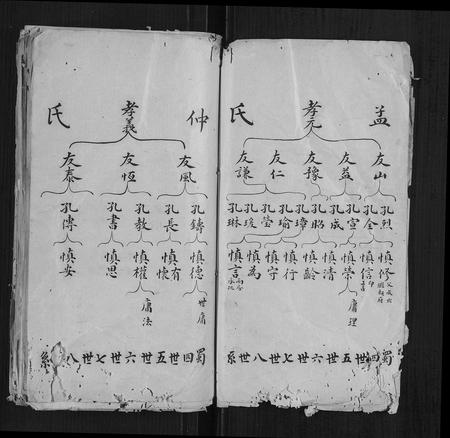 孟 孝元 氏
友山 友益 友豫 友仁 友謙
孔烈 孔全 孔宣 孔成 孔昭 孔璋 孔瑜 孔瑩 孔琰 孔琳
慎修 慎信 慎榮 慎清 慎齡 慎行 慎守 慎為 慎言
庸理
蜀四世五世六世七世八世系
仲 孝義 氏
友風 友恆 友泰
孔鑄 孔長 孔教 孔書 孔傳
慎德 慎有 慎懷 慎權 慎思 慎安
世庸 庸法
蜀四世五世六世七世八系